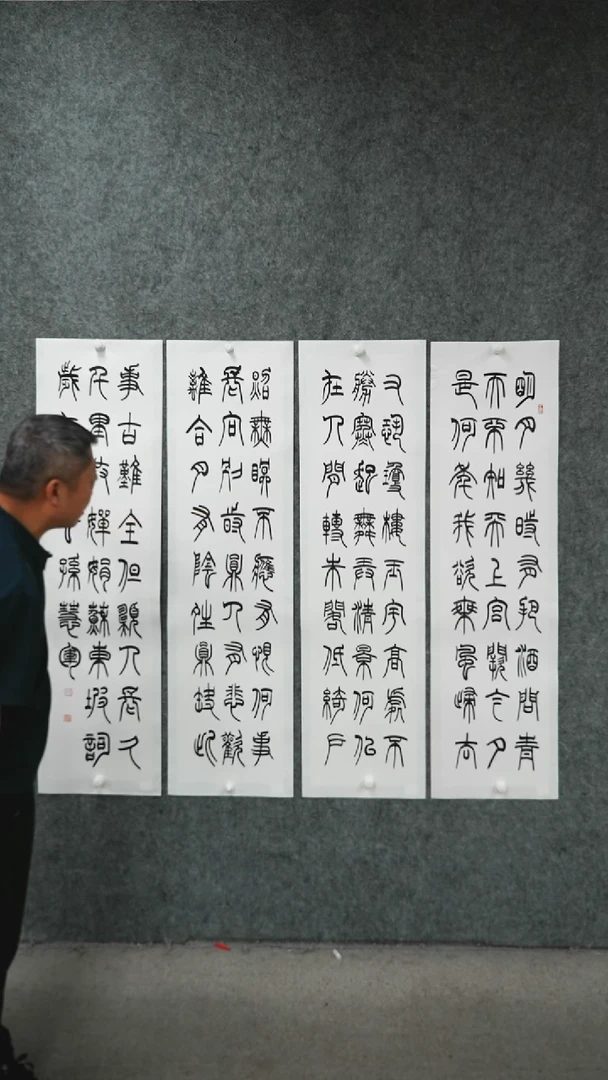 明月幾時有把酒問青
天不知天上宮闕今夕
是何年我欲乘風歸去
又恐瓊樓玉宇高處不
勝寒起舞弄清景何似
在人間轉朱閣低綺戶
照無眠不應有恨何事
長向別時圓人有悲歡
離合月有陰晴圓缺此
事古難全但願人長久
千里共嬋娟蘇東坡詞
歲孫慧軍